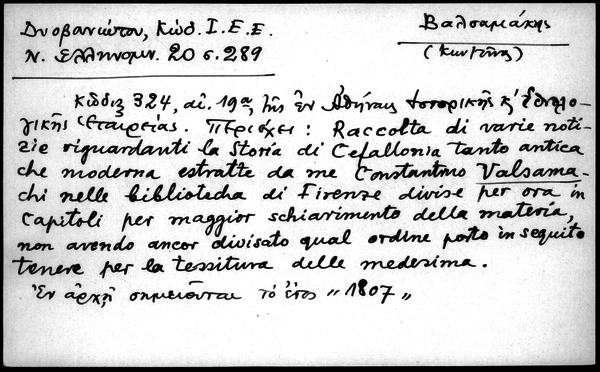 Δυοβουνιώτου, Κώδ. Ι.Ε.Ε.
Βαλσαμάκης
Ν. Ελληνομν. 20 σ. 289
(Κων/τῖνος)
Κῶδιξ 324, αἰ. 19ου, τῆς ἐν Ἀθήναις Ἱστορικῆς κ' Ἐθνολο-
γικῆς Ἑταιρείας. Περιέχει: Raccolta di varie noti-
zie riguardanti la Storia di Cefallonia tanto antica
che moderna estratte da me Constantino Valsama-
chi nelle biblioteche di Firenze divise per ora in
Capitoli per maggior schiarimento della materia,
non avendo ancor divisato qual ordine potrò in seguito
tenere per la tessitura delle medesima.
Ἐν ἀρχῇ σημειοῦται τὸ ἔτος „1807„